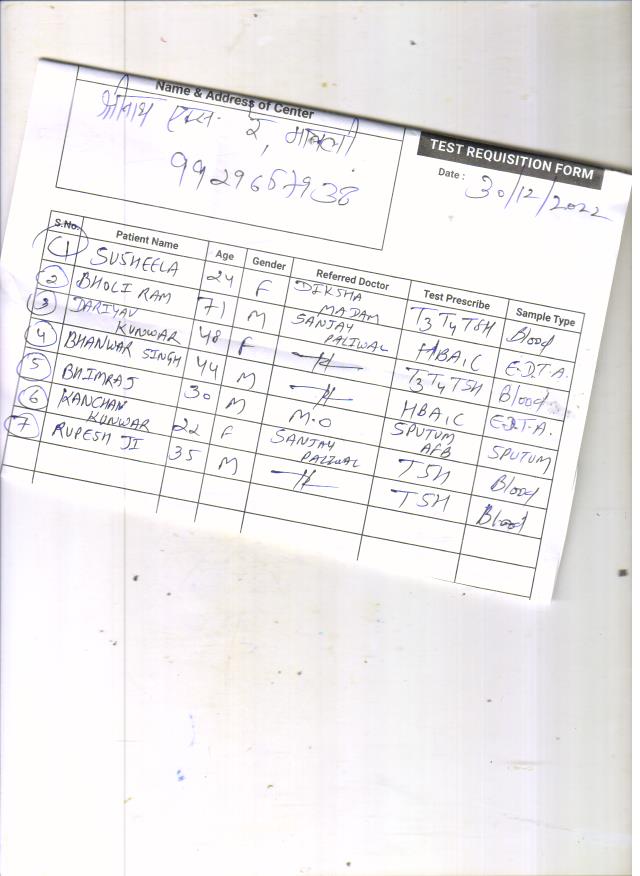 Name & Address of Center
श्रीनाथ
9929657938
TEST REQUISITION FORM
Date : 30/12/2022
S.No. Patient Name Age Gender Referred Doctor Test Prescribe Sample Type
1 SUSHEELA 24 F DIKSHA MADAM T3 T4 TSH Blood
2 BHOLI RAM 71 M SANJAY PALIWAL HBA1C E.D.T.A.
3 DARIYAV KUNWAR 48 F –//– T3 T4 TSH Blood
4 BHANWAR SINGH 44 M –//– HBA1C E.D.T.A.
5 BHIMRAJ 30 M M.O SPUTUM AFB SPUTUM
6 KANCHAN KUNWAR 22 F SANJAY PALIWAL TSH Blood
7 RUPESH JI 35 M –//– TSH Blood